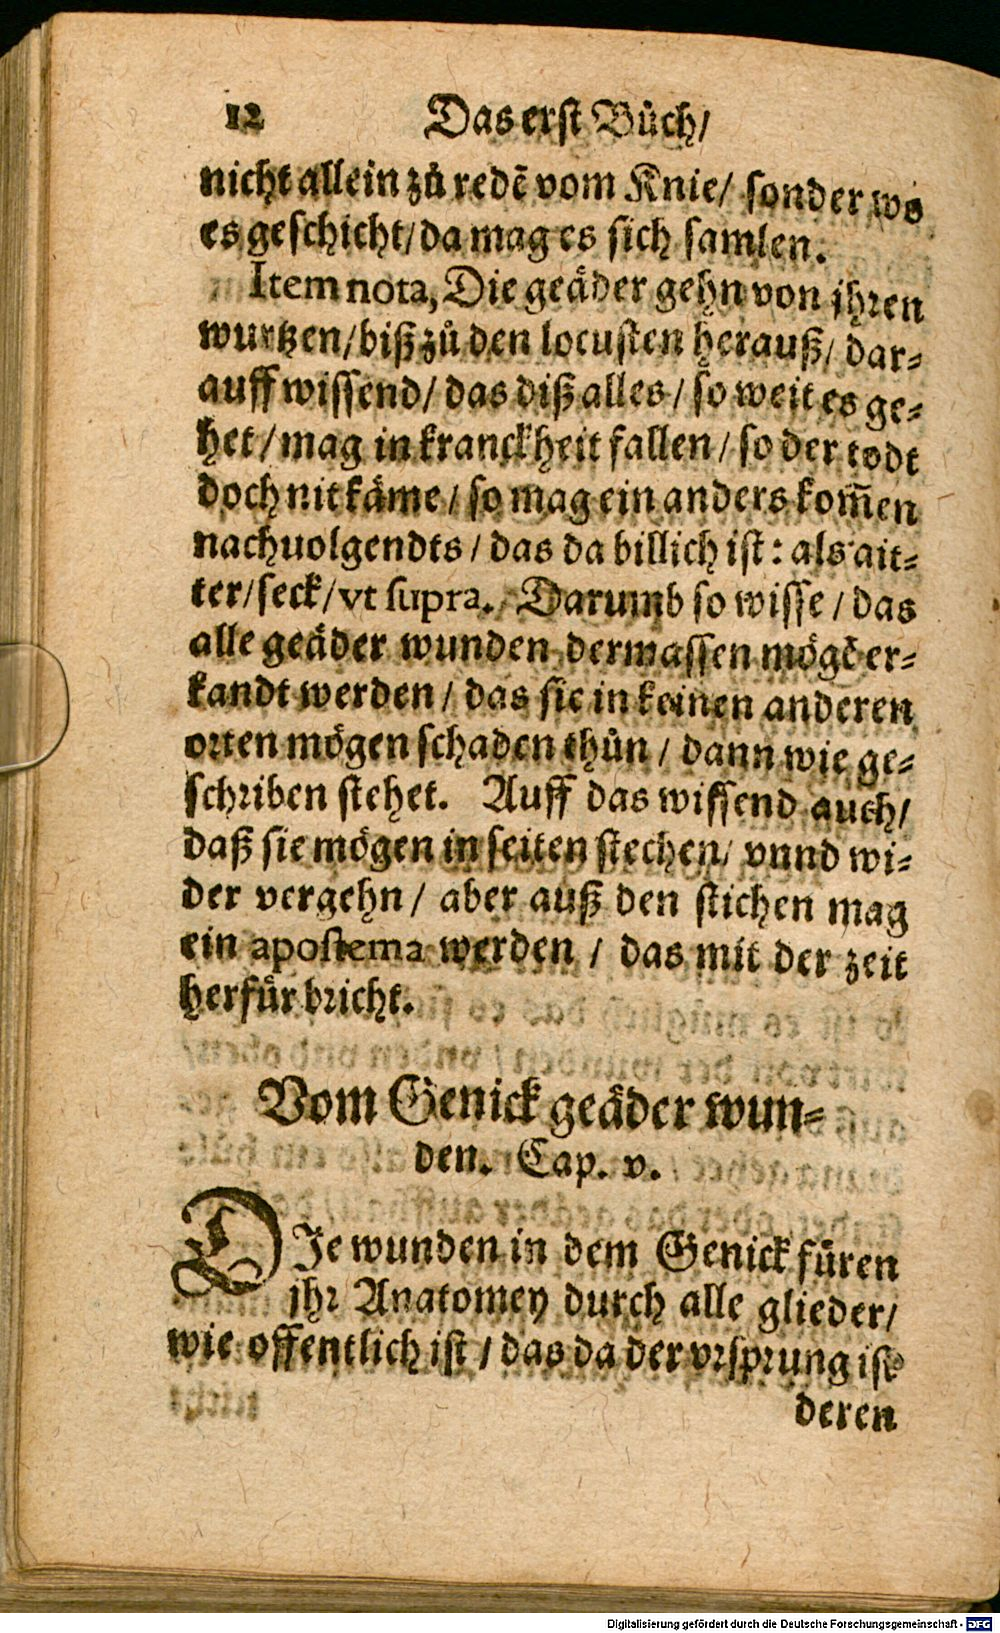 12 Das erst Bůch/
nicht allein zů redē vom Knie/ sonder wo
es geschicht/ da mag es sich samlen.
Item nota, Die geäder gehn von jhren
wurtzen/ biß zů den locusten herauß/ dar-
auff wissend/ das diß alles/ so weit es ge-
het/ mag in kranckheit fallen/ so der todt
doch nit käme/ so mag ein anders kom̄en
nachuolgendts/ das da billich ist: als ait-
ter/ seck/ vt supra. Darumb so wisse/ das
alle geäder wunden dermassen mögē er-
kandt werden/ das sie in keinen anderen
orten mögen schaden thůn/ dann wie ge-
schriben stehet. Auff das wissend auch/
daß sie mögen in seiten stechen/ vnnd wi-
der vergehn/ aber auß den stichen mag
ein apostema werden/ das mit der zeit
herfür bricht.
Vom Genick geäder wun-
den. Cap. v.
DIe wunden in dem Genick füren
jhr Anatomey durch alle glieder/
wie offentlich ist/ das da der vrsprung ist
deren
Digitalisierung gefördert durch die Deutsche Forschungsgemeinschaft - DFG